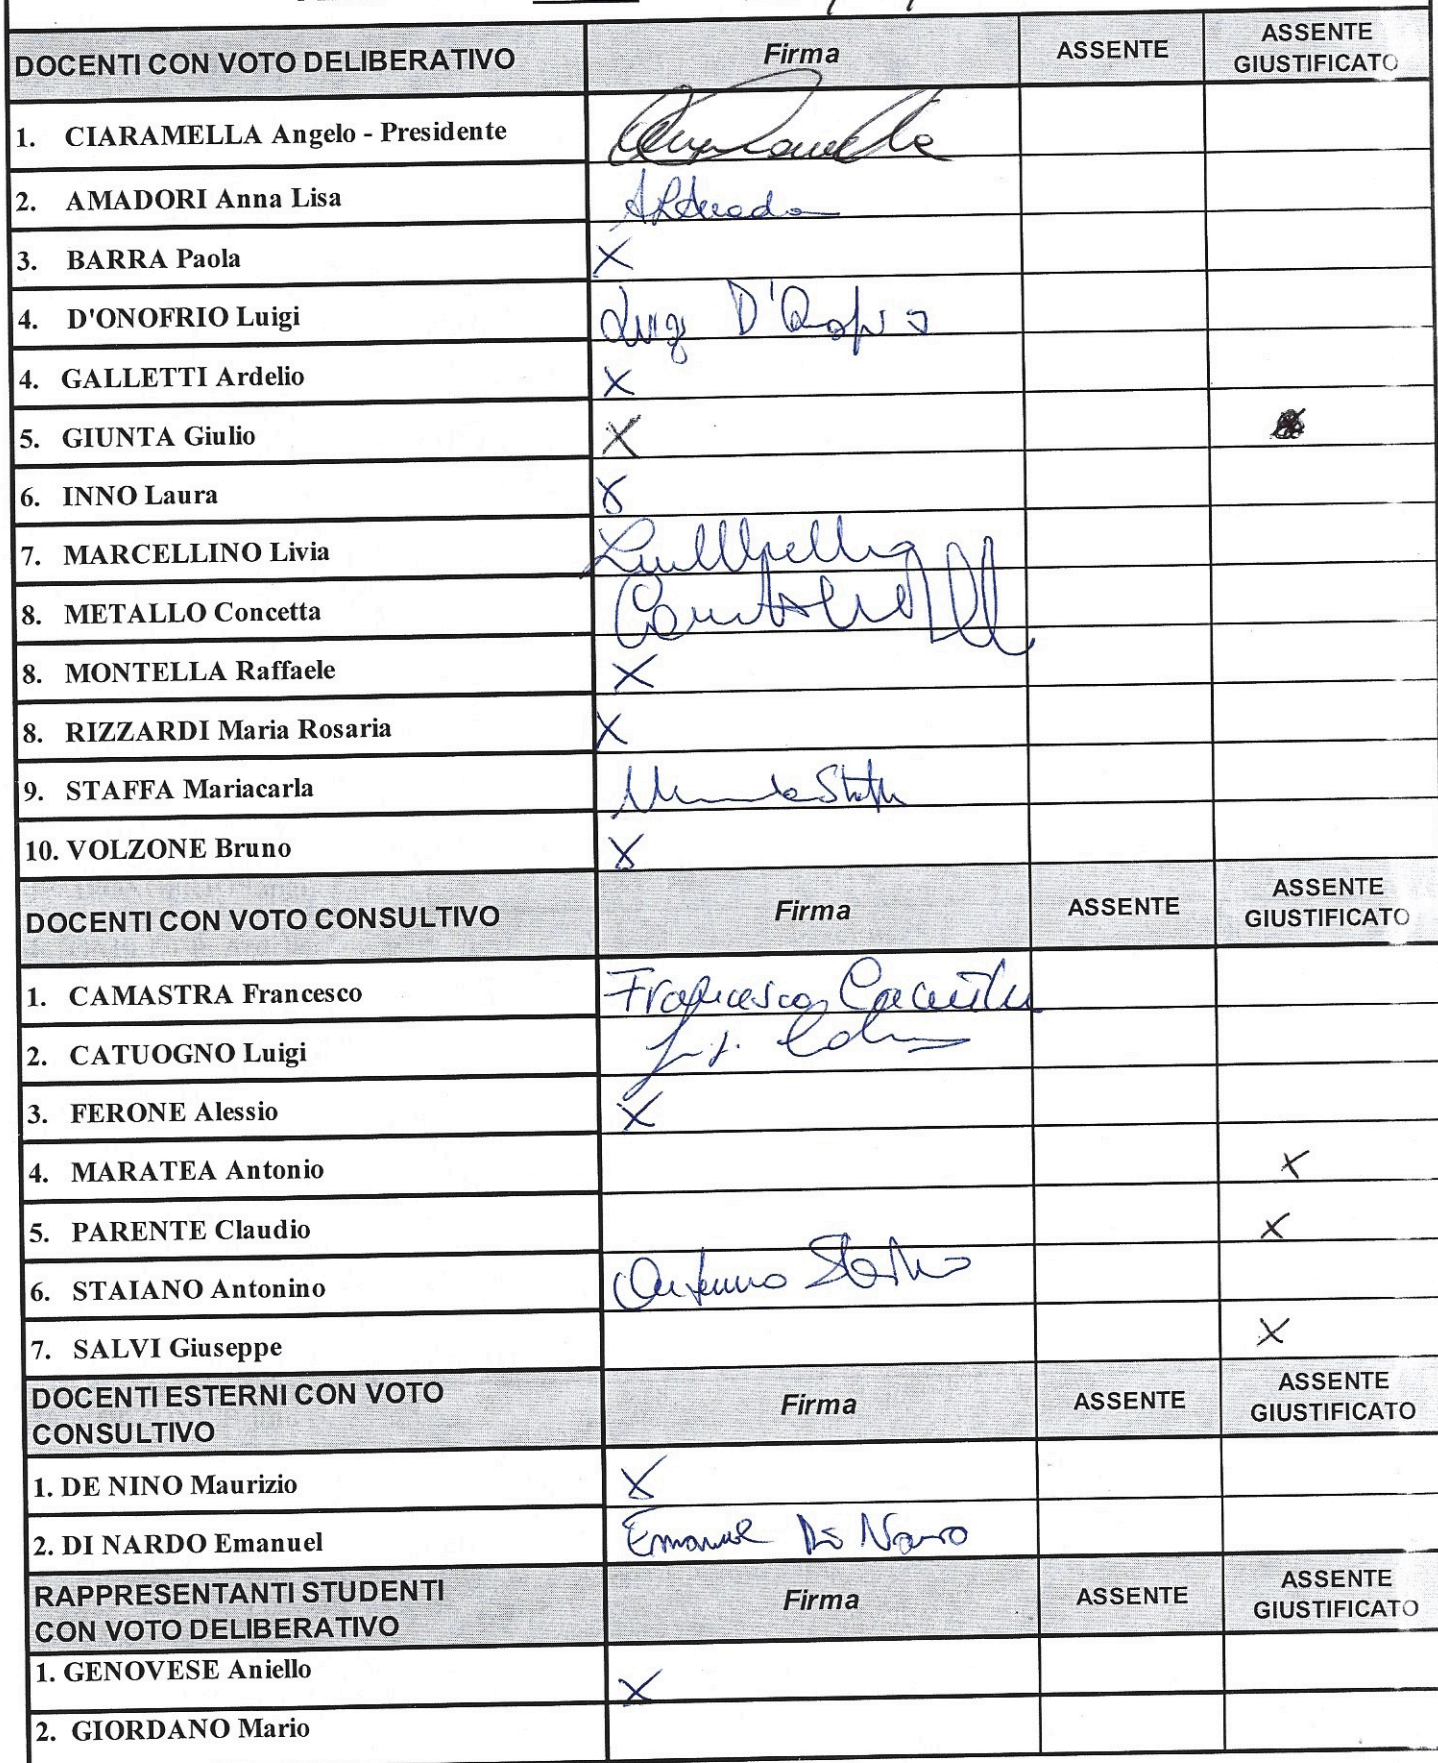 DOCENTI CON VOTO DELIBERATIVO Firma ASSENTE ASSENTE GIUSTIFICATO
1. CIARAMELLA Angelo - Presidente
2. AMADORI Anna Lisa
3. BARRA Paola X
4. D'ONOFRIO Luigi Luigi D'Onofrio
4. GALLETTI Ardelio X
5. GIUNTA Giulio X
6. INNO Laura X
7. MARCELLINO Livia
8. METALLO Concetta
8. MONTELLA Raffaele X
8. RIZZARDI Maria Rosaria X
9. STAFFA Mariacarla
10. VOLZONE Bruno X
DOCENTI CON VOTO CONSULTIVO Firma ASSENTE ASSENTE GIUSTIFICATO
1. CAMASTRA Francesco Francesco Camastra
2. CATUOGNO Luigi
3. FERONE Alessio X
4. MARATEA Antonio X
5. PARENTE Claudio X
6. STAIANO Antonino Antonino Staiano
7. SALVI Giuseppe X
DOCENTI ESTERNI CON VOTO
CONSULTIVO Firma ASSENTE ASSENTE GIUSTIFICATO
1. DE NINO Maurizio X
2. DI NARDO Emanuel Emanuel Di Nardo
RAPPRESENTANTI STUDENTI
CON VOTO DELIBERATIVO Firma ASSENTE ASSENTE GIUSTIFICATO
1. GENOVESE Aniello X
2. GIORDANO Mario